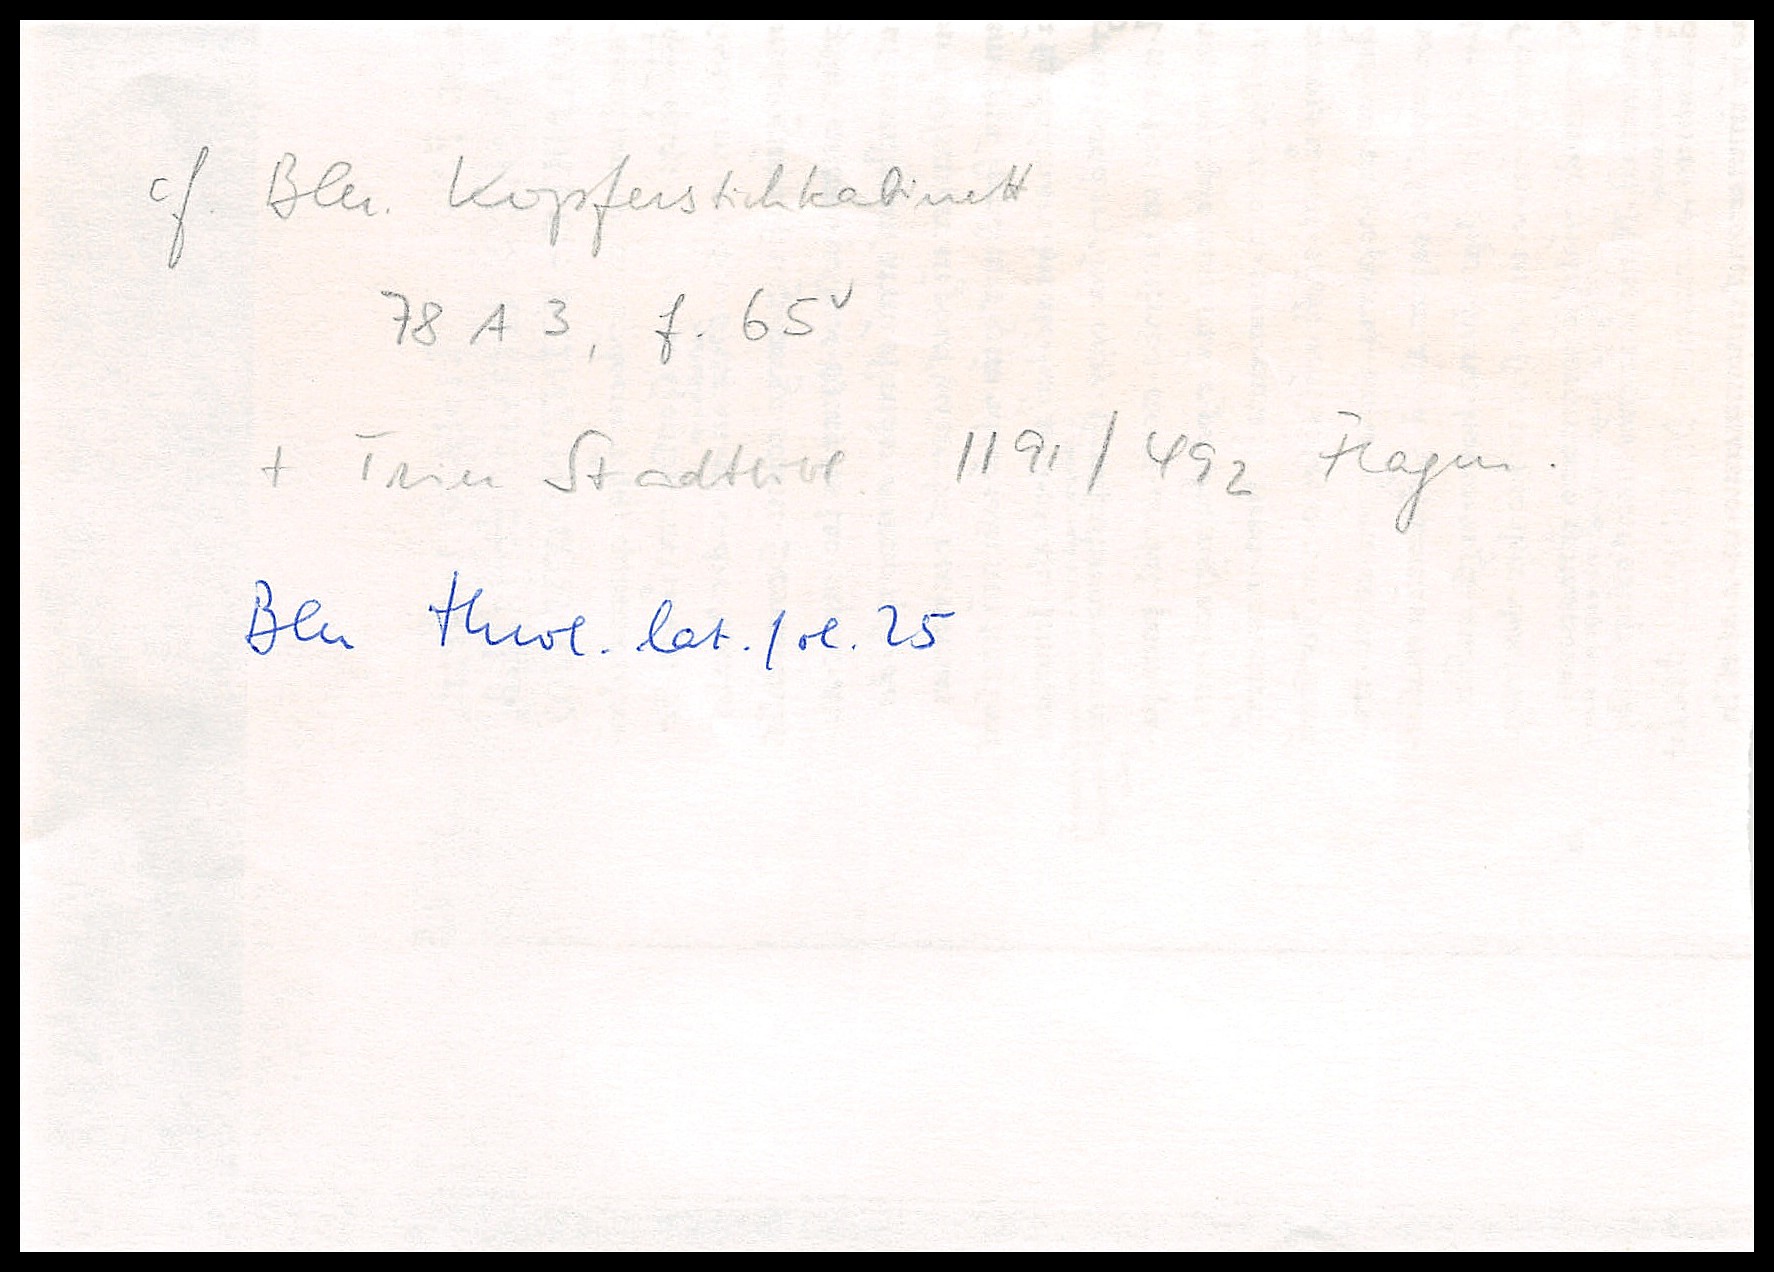 cf. Bln. Kupferstichkabinett
78 A 3, f. 65v
+ Trier Stadtbibl. 1191/492 Fragm.
Bln theol. lat. fol. 25